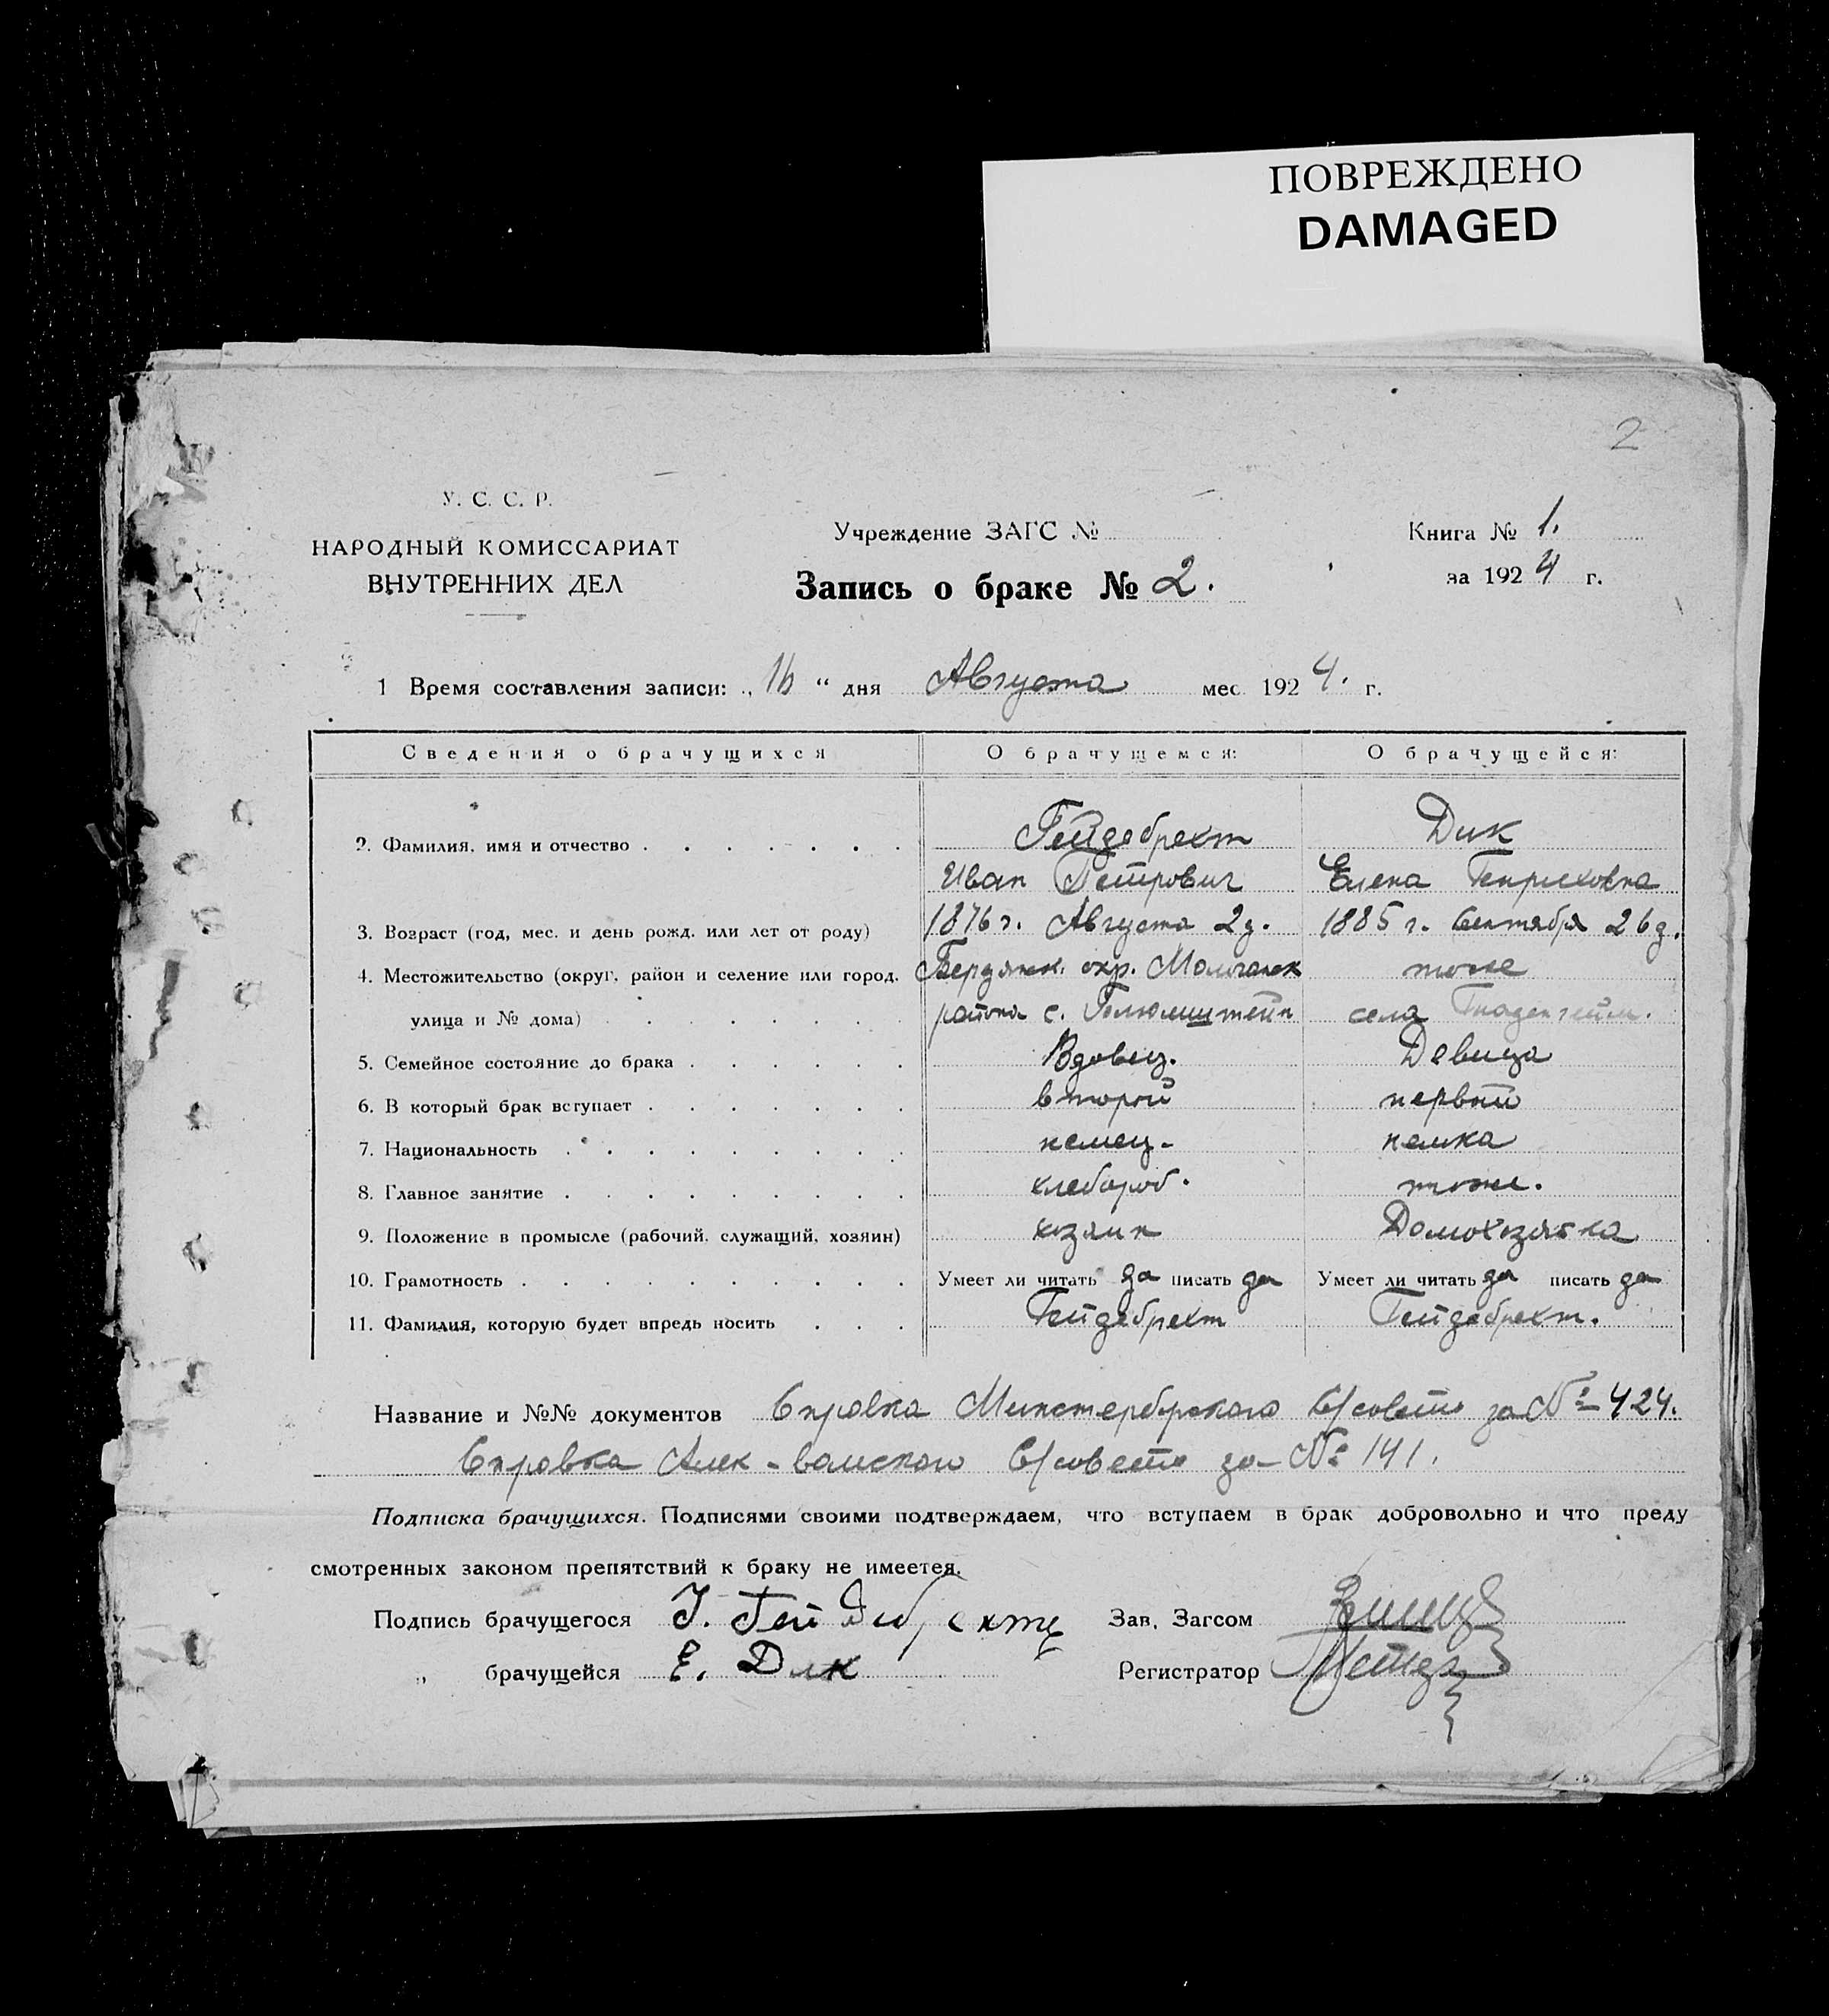 ПОВРЕЖДЕНО
DAMAGED
2
У. С. С. Р.
НАРОДНЫЙ КОМИССАРИАТ
ВНУТРЕННИХ ДЕЛ
Учреждение ЗАГС №
Запись о браке № 2.
Книга № 1.
за 1924 г.
1 Время составления записи: „16“ дня Августа мес 1924. г.
Сведения о брачущихся О брачущемся: О брачущейся:
2. Фамилия, имя и отчество . . . . . . . Гейдебрехт Дик
Иван Петрович Елена Генриховна
3. Возраст (год, мес. и день рожд. или лет от роду) 1876 г. Августа 2 д. 1885 г. Сентября 26 д.
4. Местожительство (округ, район и селение или город, Бердянск. окр. Молочанск тоже
улица и № дома) . . . . . . . района с. села Гнаденгейм.
5. Семейное состояние до брака . . . . . . Вдовец. Девица
6. В который брак вступает . . . . . . . второй первый
7. Национальность . . . . . . . . . немец- немка
8. Главное занятие . . . . . . . . . хлебороб. тоже.
9. Положение в промысле (рабочий, служащий, хозяин) хозяин Домохозяйка
10. Грамотность . . . . . . . . . . Умеет ли читать да писать да Умеет ли читать да писать да
11. Фамилия, которую будет впредь носить . . . Гейдебрехт Гейдебрехт.
Название и №№ документов Справка Минстербергского С/совета за № 424.
Справка С/совета за № 141.
Подписка брачущихся. Подписями своими подтверждаем, что вступаем в брак добровольно и что преду
смотренных законом препятствий к браку не имеется.
Подпись брачущегося И. Гейдебрехт Зав. Загсом
„ брачущейся Е. Дик Регистратор